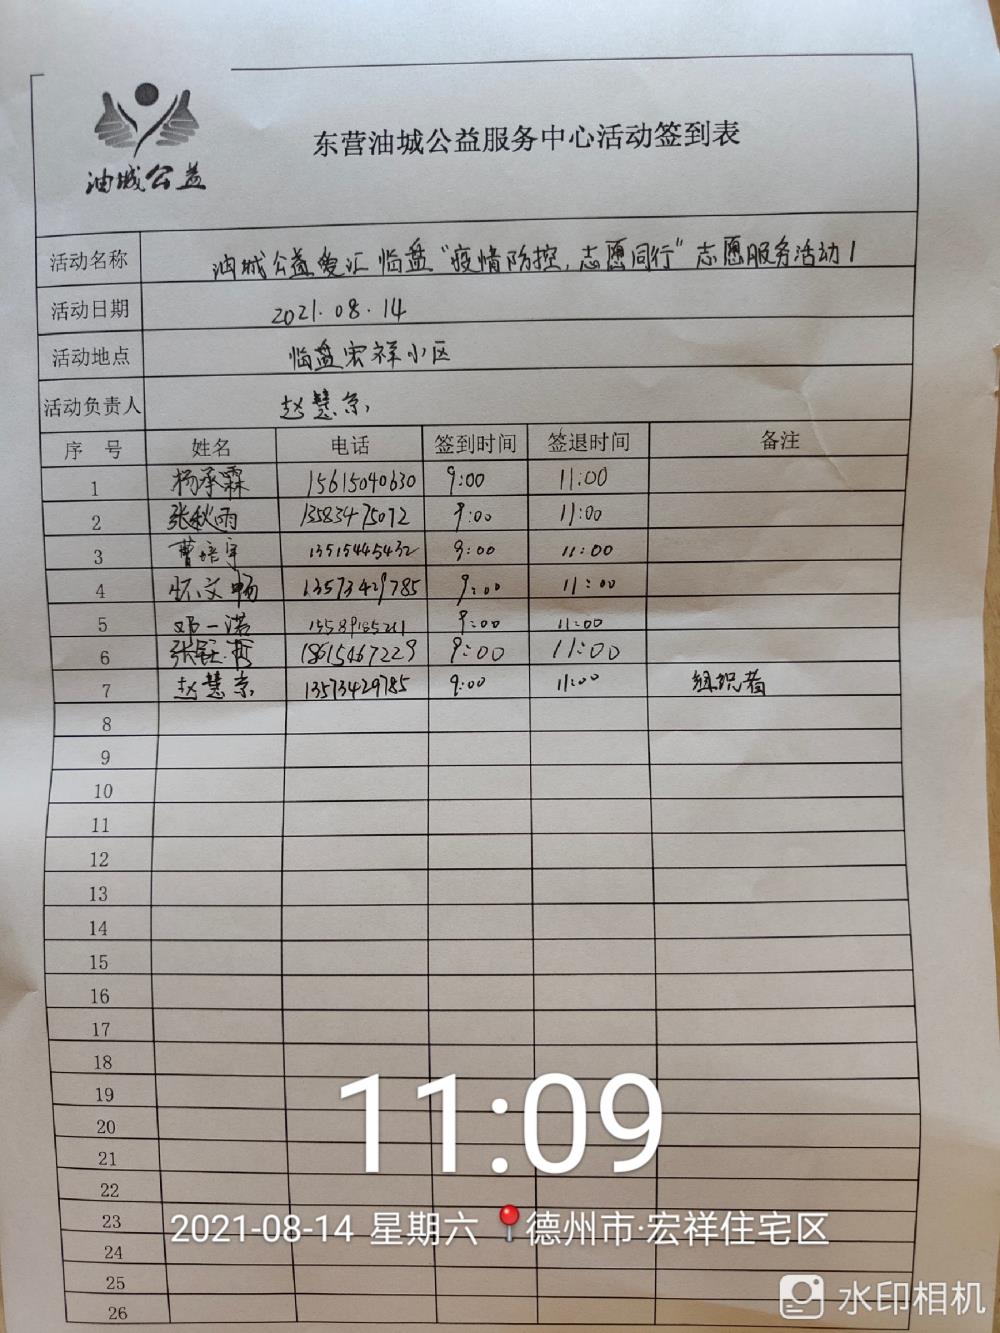 油城公益
东营油城公益服务中心活动签到表
活动名称 油城公益爱汇临盘“疫情防控,志愿同行”志愿服务活动1
活动日期 2021.08.14
活动地点 临盘宏祥小区
活动负责人 赵慧京
序号 姓名 电话 签到时间 签退时间 备注
1 杨承霖 15615040630 9:00 11:00
2 张秋雨 13583475072 9:00 11:00
3 曹培宇 13515445432 9:00 11:00
4 怀文畅 13573429785 9:00 11:00
5 邓一诺 9:00 11:00
6 18615467229 9:00 11:00
7 赵慧京 13573429785 9:00 11:00 组织者
8
9
10
11
12
13
14
15
16
17
18
19
20
21
22
23
24
25
26
11:09
2021-08-14 星期六 德州市·宏祥住宅区
水印相机